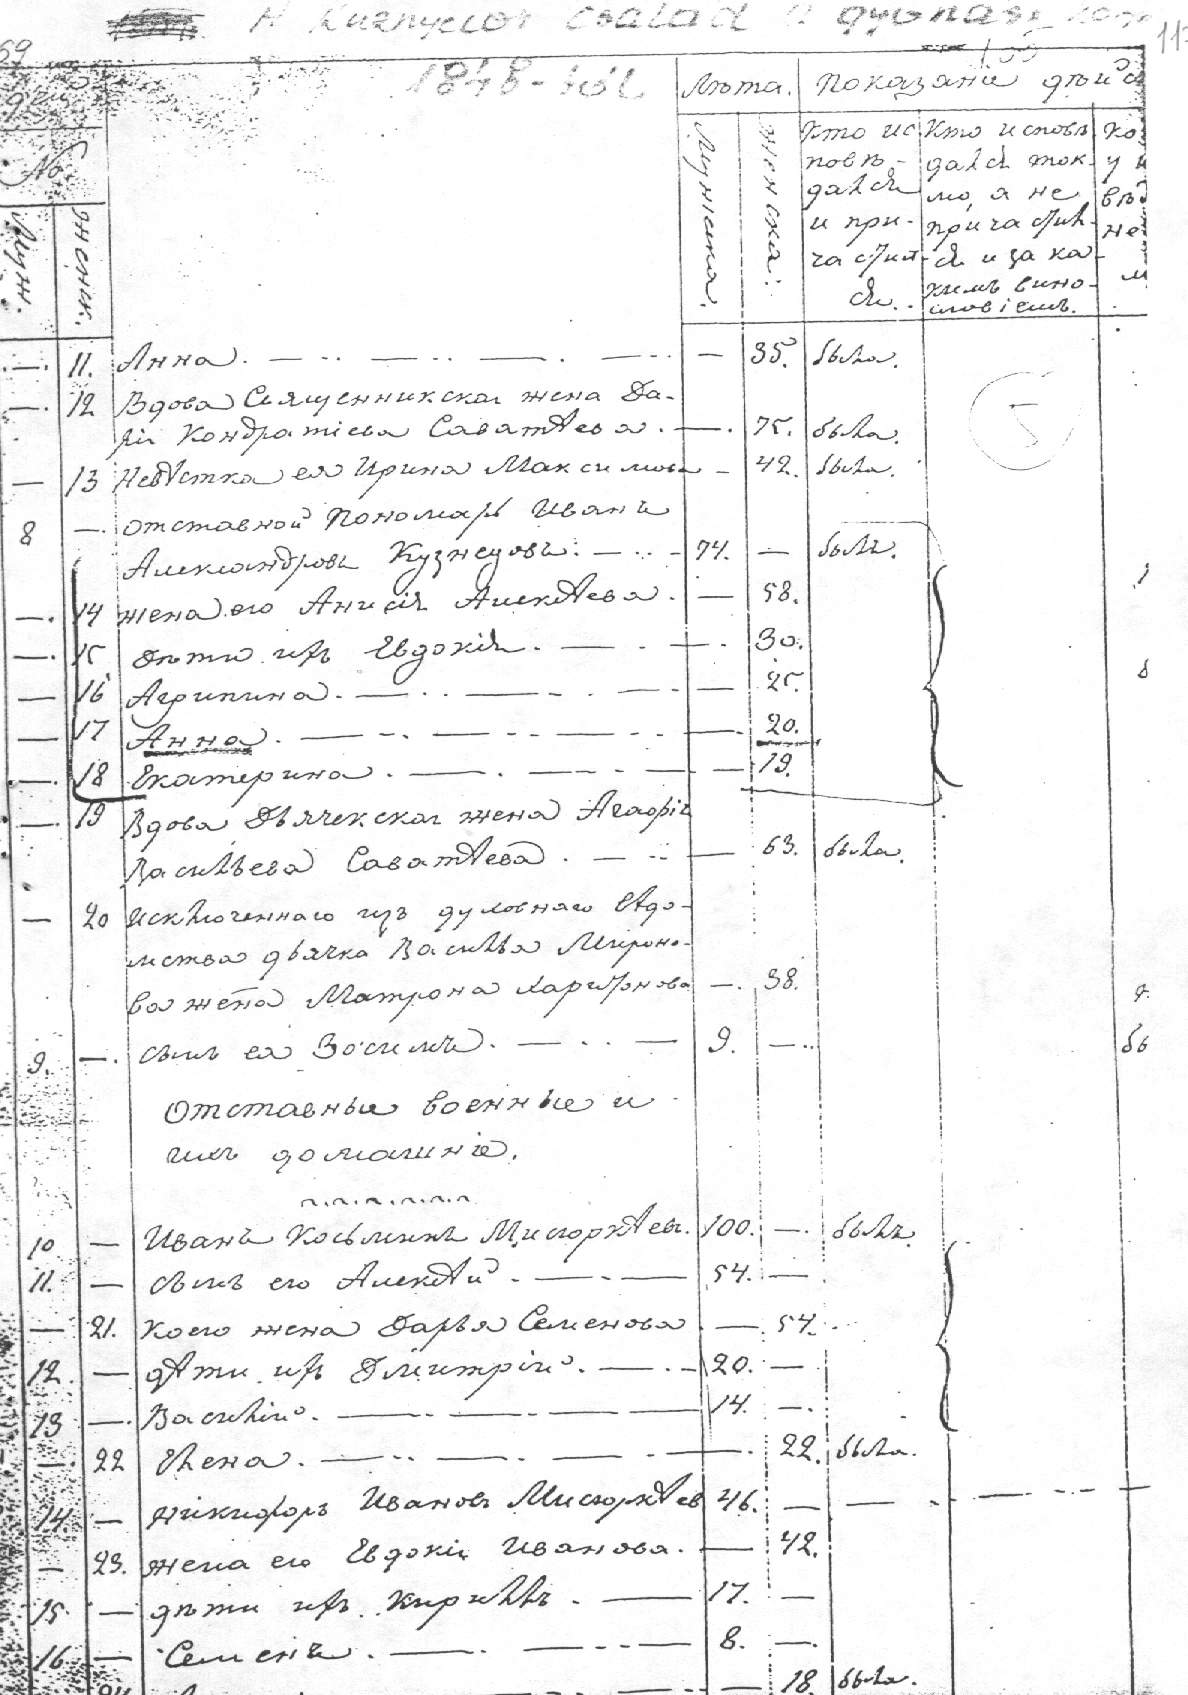 A Kuznyecov család a gyónási
1848-ból
155
59
11
Лѣта. Показанiе дѣйс
No
Муж. женск. Мужска. женска:
Кто ис
повѣ-
дался
и при-
частил
ся.
Кто исповѣ
дался ток-
мо, а не
причастил-
ся и за ка-
кимъ вино-
словiемъ.
—. 11. Анна. — 35. была.
—. 12 Вдова Священникская жена Да-
рiя Кондратiева Саватѣева. —. 75. была.
— 13 Невѣстка ея Ирина Максимова — 42. была.
8 — отставной Пономарь Иванъ
Александровъ Кузнецовъ. — 74. — былъ.
—. 14 жена его Анисiя Алексѣева. — 58.
—. 15 дѣти ихъ Евдокiя. — 30.
— 16 Агрипина. — 25.
— 17 Анна. — 20.
—. 18 Екатерина. — 19.
—. 19 Вдова Дьячекская жена Агафiя
Васильева Саватѣева. — 63. была.
— 20 Исключеннаго изъ духовнаго вѣдо-
мства дьячка Василья Мироно-
ва жена Матрона Харитонова —. 38.
9. —. сынъ ея Зосимъ. — 9. —
Отставные военные и
ихъ домашнiе.
10 — Иванъ Косьминъ Мисюркѣевъ. 100. —. былъ.
11. — сынъ его Алексѣй. — 54. —
— 21. Коего жена Дарья Семенова. — 54.
12. — дѣти ихъ Дмитрiй. — 20. —
13 —. Василiй. — 14. —.
—. 22 Елена. — 22. была.
14. — Никифоръ Ивановъ Мисюркѣев 46. —
— 23. жена его Евдокiя Иванова. — 42.
15. — дѣти ихъ Кирилъ. — 17. —
16 — Семенъ. — 8. —.
18. была.
5